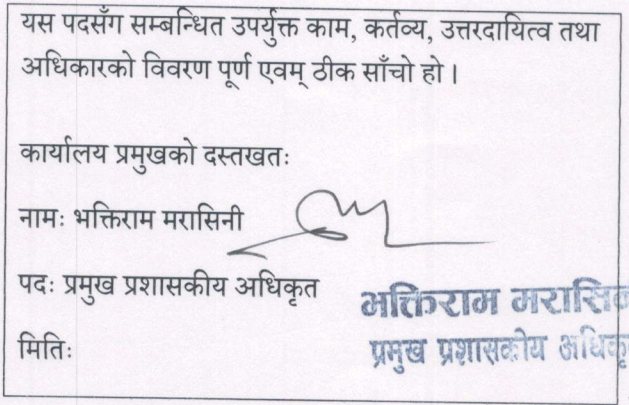 यस पदसँग सम्बन्धित उपर्युक्त काम, कर्तव्य, उत्तरदायित्व तथा
अधिकारको विवरण पूर्ण एवम् ठीक साँचो हो ।
कार्यालय प्रमुखको दस्तखतः
नामः भक्तिराम मरासिनी
पदः प्रमुख प्रशासकीय अधिकृत
भक्तिराम
मितिः
प्रमुख प्रशासकीय